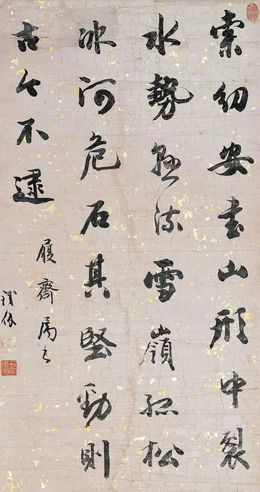 索幼安书山形中裂
水势悬流雪岭孤松
冰河危石其坚劲则
古今不逮
履斋属书
铁保